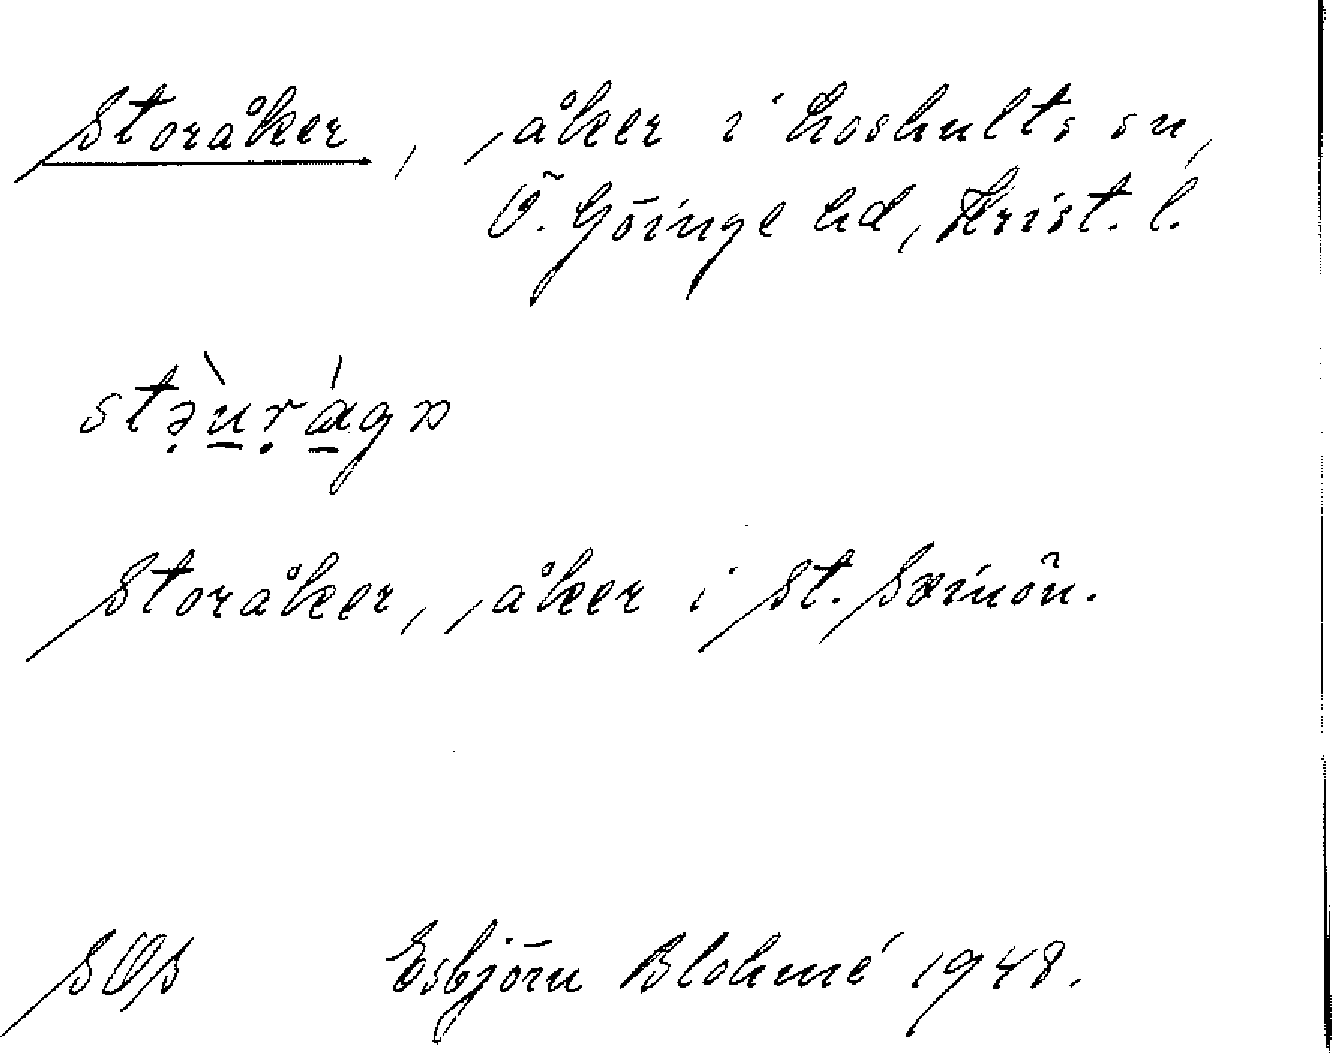 Storåker, åker i Loshults sn,
Ö. Göinge hd, Krist. l.
stə̣̀u̱ṛá̱gɒ
Storåker, åker i St. Svinön.
SOS Esbjörn Blohmé 1948.